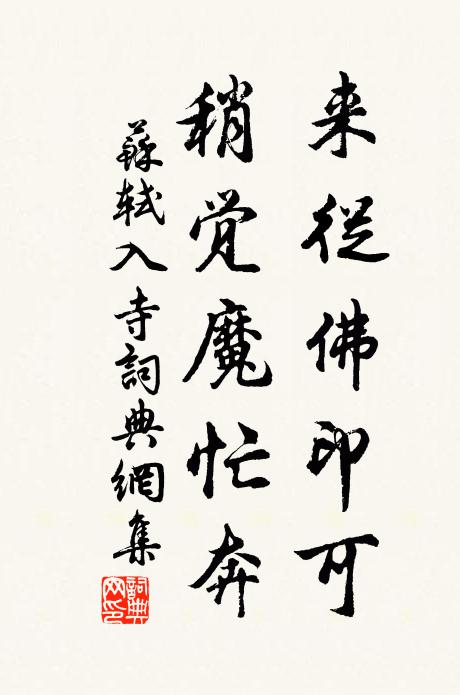 来從佛印可
稍覚魔忙奔
蘇軾入寺詞典網集
詞典网印